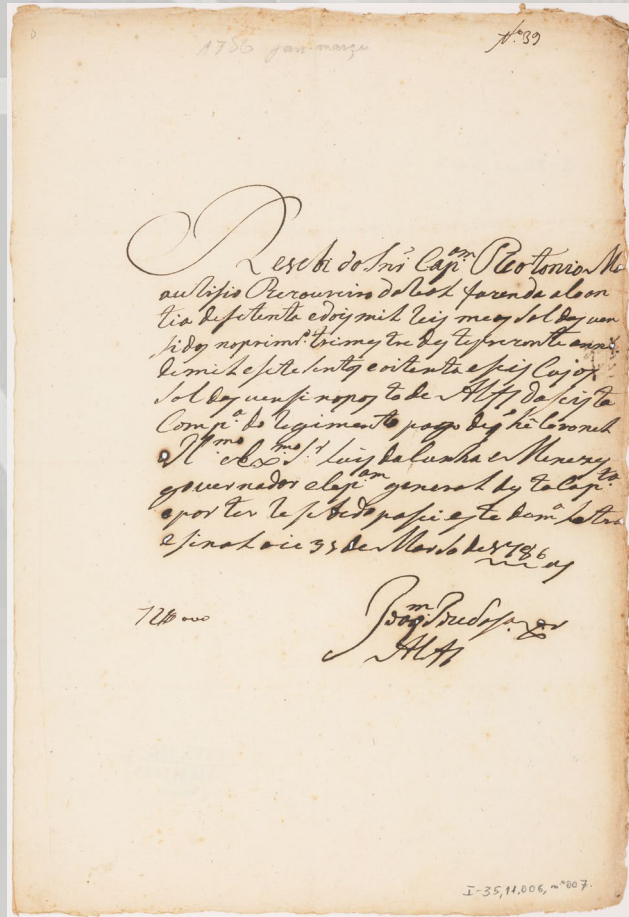 1786 jan-março
Nº 39
Resebi do Snr̃ Cap.am Theotonio Ma
auricio Thezoureiro da Real fazenda a coan
tia de setenta e dois mil reis meos soldos ven
sidos no prim.ro trimestre deste prezente anno
de mil e sete sentos e oitenta e seis Cujos
soldos vensi no posto de Alfs da sesta
Comp.a do regimento pago de q̃ he Coronel
o Ill.mo e Ex.mo S.r Luis da Cunha e Menezes
governador e Cap.am general desta Cap.ta
e por ter resebido pasei este de m.a letra
e sinal oie 31 de Marso de 1786
72$000
Alfs
I-35,11,006, nº007.